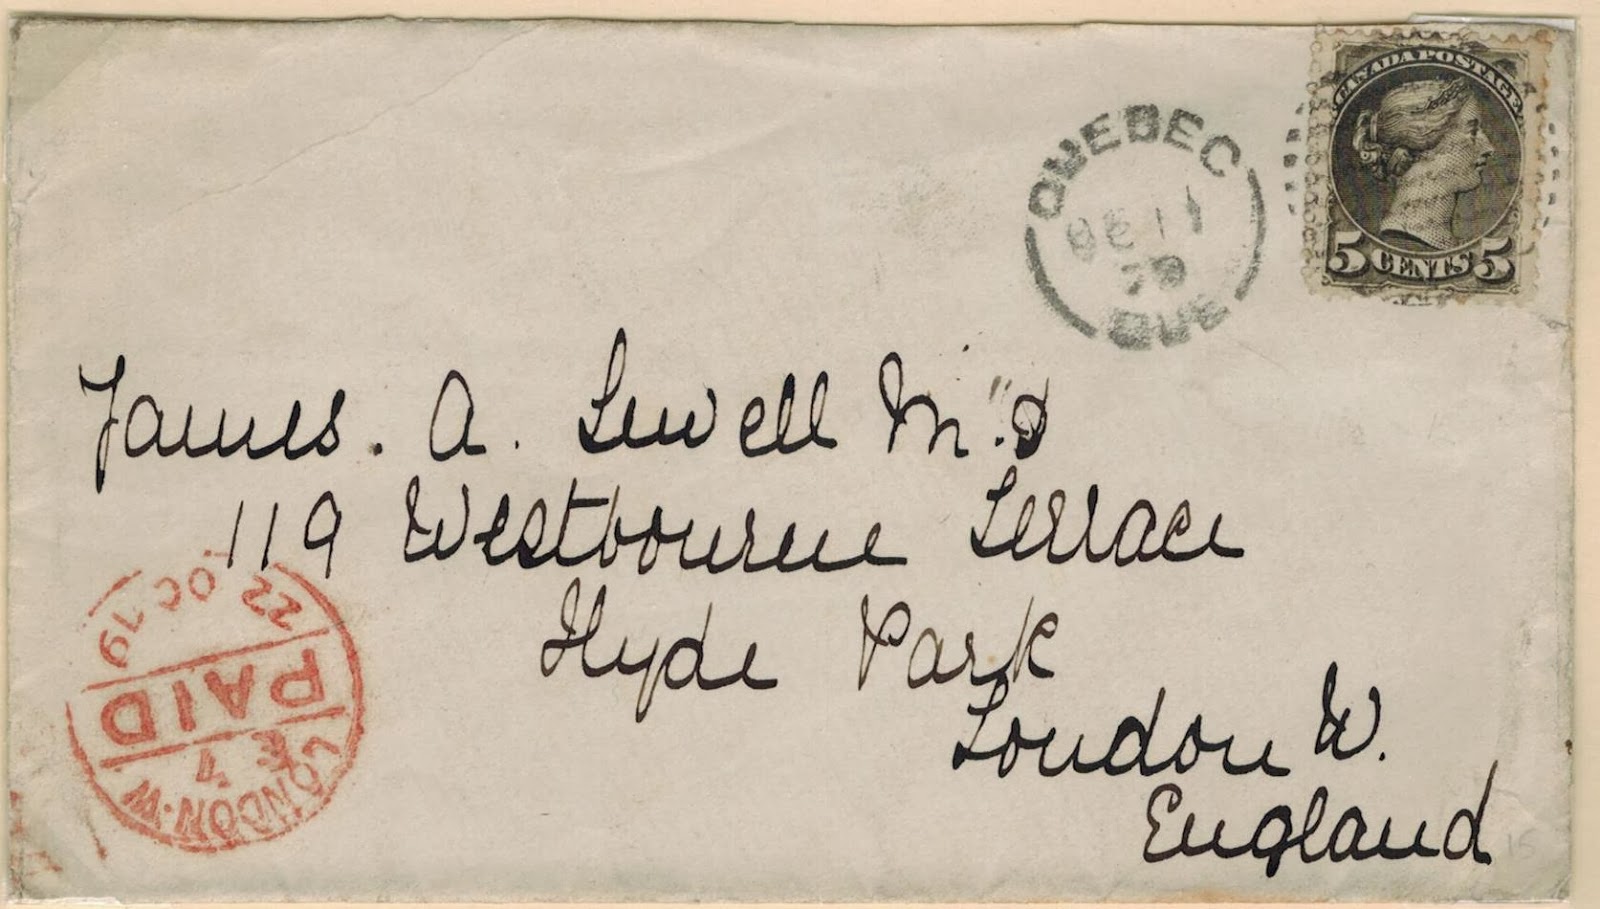 CANADA POSTAGE
5 CENTS 5
QUEBEC
OC 11
79
QUE
James. A. Sewell M.D
119 Westbourne Terrace
Hyde Park
London W.
England
LONDON.W
E 7
PAID
22 OC 79
15